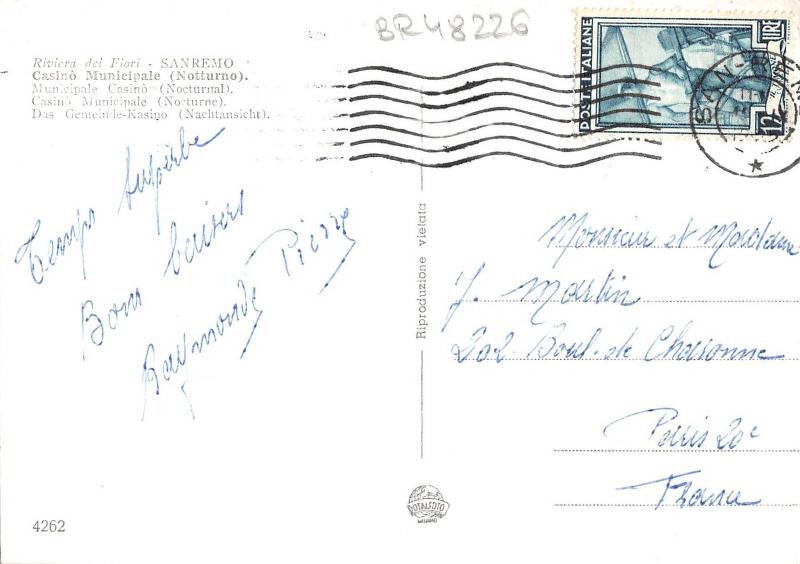 BR48226
Riviera dei Fiori - SANREMO
Casinò Municipale (Notturno).
Municipale Casinò (Nocturnal).
Casinò Municipale (Nocturne).
Das Gemeinde-Kasino (Nachtansicht).
POSTE ITALIANE
LIRE
12
SAN
Temps superbe
Bons baisers
Raymonde Pierre
Riproduzione vietata
Monsieur et Madame
J. Martin
202. Boul. de Charonne
Paris 20e
France
ROTALFOTO
MILANO
4262